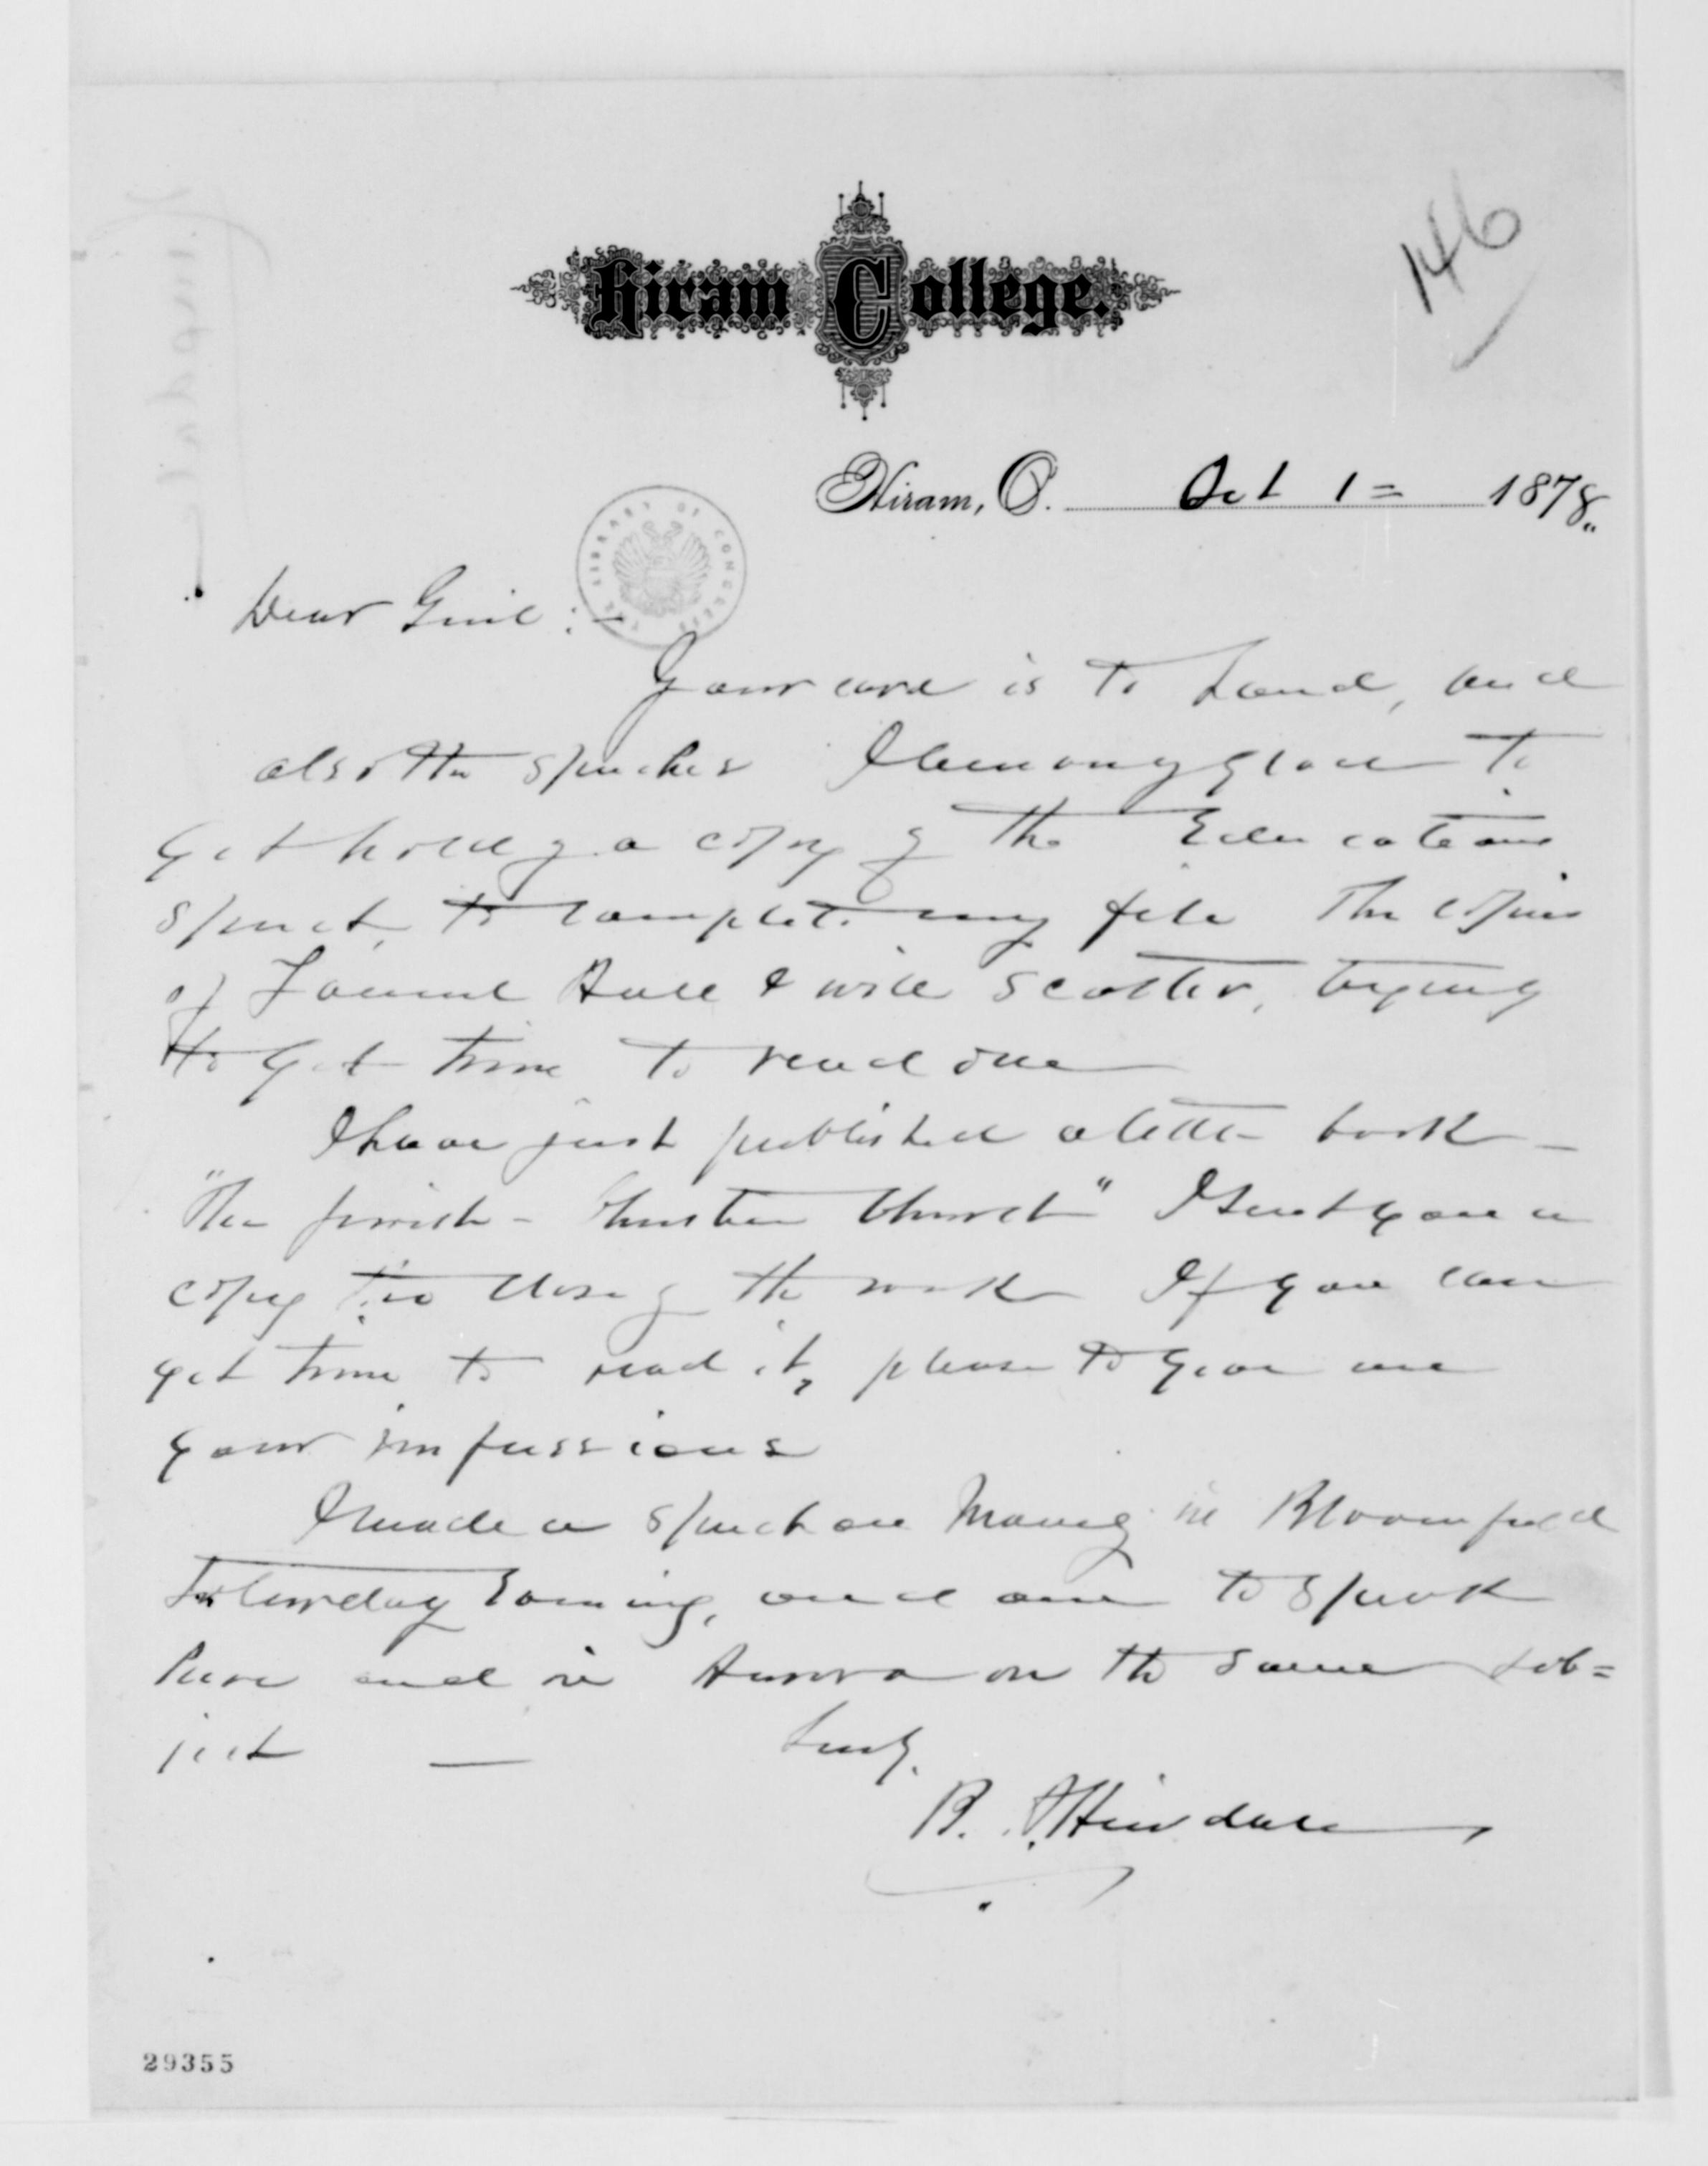 146
Hiram College.
Hiram, O. Oct 1= 1878.
THE LIBRARY OF CONGRESS
Dear Genl:-
Your card is to hand, and
also the speeches I am very glad to
get hold of a copy of the Education
speech, to complete my file The copies
of Faneuil Hall I will scatter, trying
to get time to read one
I have just published a little book —
"The Jewish-Christian Church" I sent you a
copy the close of the week If you can
get time to read it, please to give me
your impressions
I made a speech on Money in Bloomfield
Saturday Evening, and am to speak
here and in Aurora on the same sub=
ject — Truly.
B. A. Hinsdale
29355